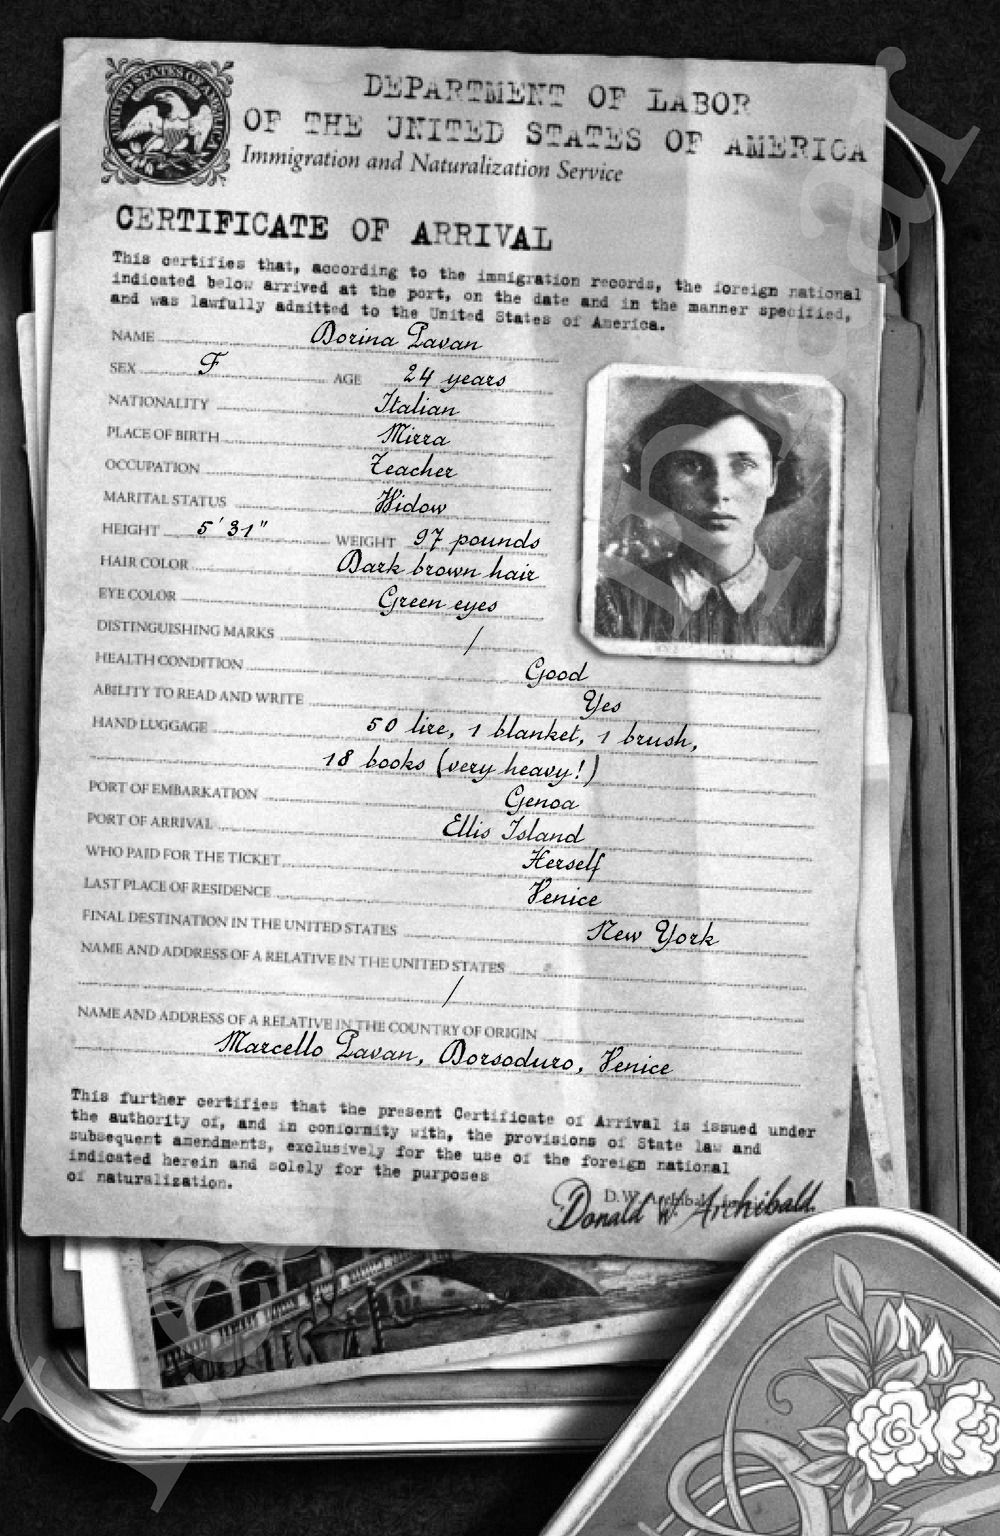 UNITED STATES OF AMERICA
DEPARTMENT OF LABOR
OF THE UNITED STATES OF AMERICA
Immigration and Naturalization Service
CERTIFICATE OF ARRIVAL
This certifies that, according to the immigration records, the foreign national
indicated below arrived at the port, on the date and in the manner specified,
and was lawfully admitted to the United States of America.
NAME Dorina Pavan
SEX F AGE 24 years
NATIONALITY Italian
PLACE OF BIRTH Mirra
OCCUPATION Teacher
MARITAL STATUS Widow
HEIGHT 5'31" WEIGHT 97 pounds
HAIR COLOR Dark brown hair
EYE COLOR Green eyes
DISTINGUISHING MARKS /
HEALTH CONDITION Good
ABILITY TO READ AND WRITE Yes
HAND LUGGAGE 50 lire, 1 blanket, 1 brush,
18 books (very heavy!)
PORT OF EMBARKATION Genoa
PORT OF ARRIVAL Ellis Island
WHO PAID FOR THE TICKET Herself
LAST PLACE OF RESIDENCE Venice
FINAL DESTINATION IN THE UNITED STATES New York
NAME AND ADDRESS OF A RELATIVE IN THE UNITED STATES
/
NAME AND ADDRESS OF A RELATIVE IN THE COUNTRY OF ORIGIN
Marcello Pavan, Dorsoduro, Venice
This further certifies that the present Certificate of Arrival is issued under
the authority of, and in conformity with, the provisions of State law and
subsequent amendments, exclusively for the use of the foreign national
indicated herein and solely for the purposes
of naturalization.
D.W. Archibald
Donald W. Archibald